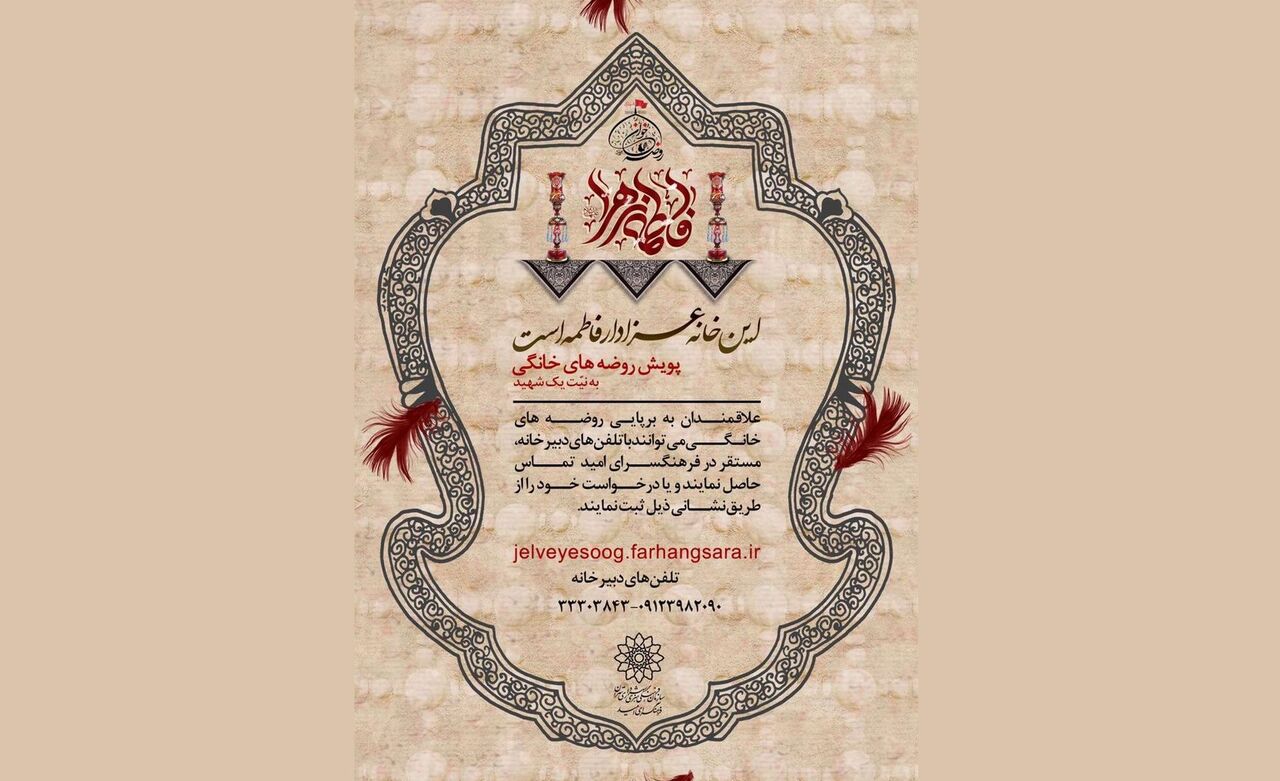 فاطمه زهرا
این خانه عزادار فاطمه است
پویش روضه های خانگی
به نیّت یک شهید
علاقمندان به برپایی روضه های
خانگی می توانند با تلفن های دبیرخانه،
مستقر در فرهنگسرای امید تماس
حاصل نمایند و یا درخواست خود را از
طریق نشانی ذیل ثبت نمایند.
jelveyesoog.farhangsara.ir
تلفن های دبیرخانه
۳۳۳۰۳۸۴۳-۰۹۱۲۳۹۸۲۰۹۰
فرهنگسرای امید